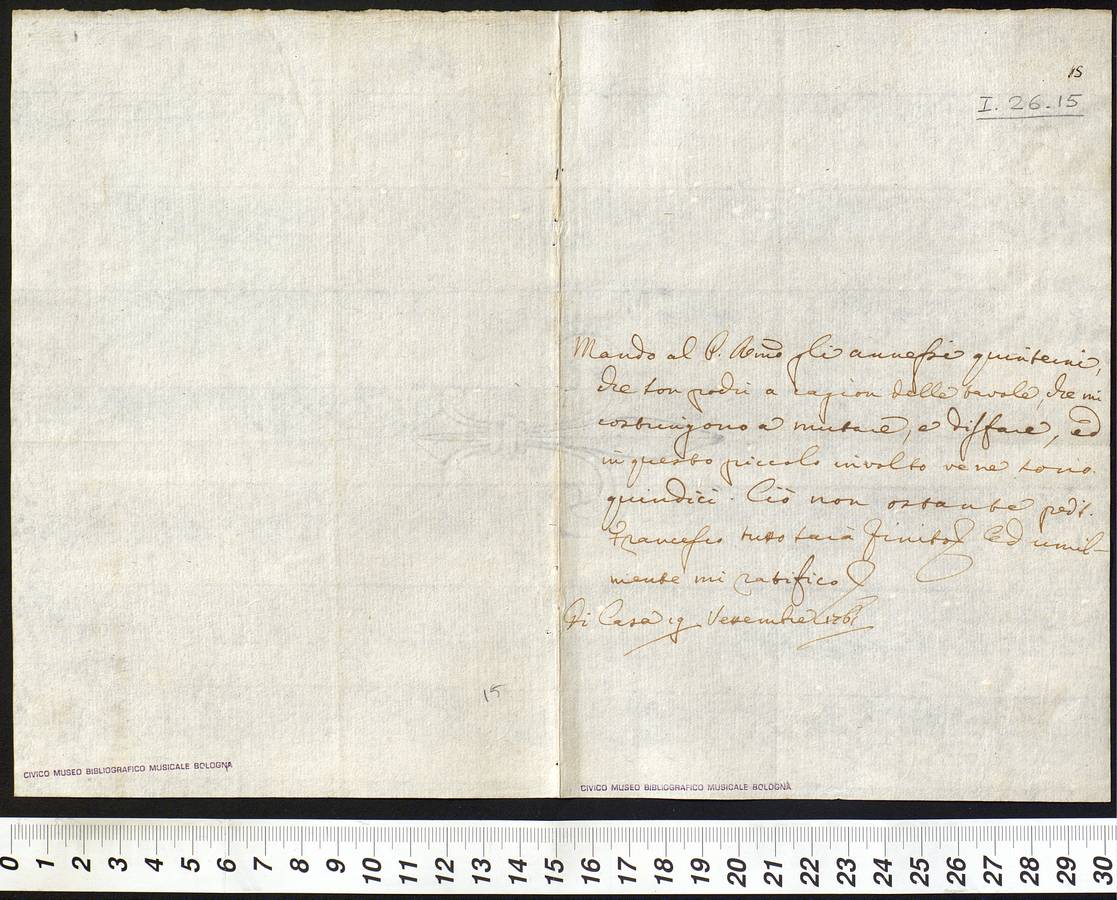 15
I. 26.15
Mando al P. Rmo gli annessi quinterni,
che son pochi a cagion delle tavole, che mi
costringono a mutare, e disfare, ed
in questo piccolo involto ve ne sono
quindici. Ciò non ostante
tutto sarà finito. Ed umil-
mente mi ratifico
Di Casa 19 1761
15
CIVICO MUSEO BIBLIOGRAFICO MUSICALE BOLOGNA
CIVICO MUSEO BIBLIOGRAFICO MUSICALE BOLOGNA
0 1 2 3 4 5 6 7 8 9 10 11 12 13 14 15 16 17 18 19 20 21 22 23 24 25 26 27 28 29 30